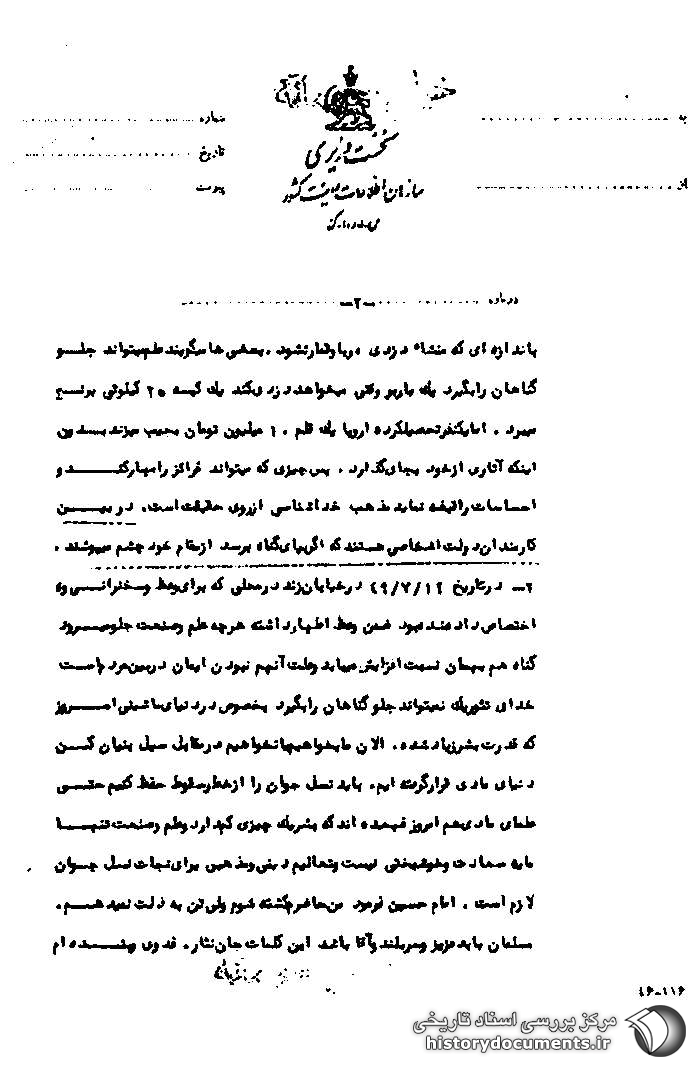 به
شماره
نخست وزیری
تاریخ
سازمان اطلاعات و امنیت کشور
از
پیوست
درباره -۲-
باندازه ای که منشاء دزدی دریا وقمارنشود. بعضی ها میگویند علم میتواند جلو
گناهان رابگیرد یك باربر وقتی میخواهد دزدی کند یك کیسه ۲۰ کیلوئی برنج
میبرد . امایکنفرتحصیلکرده اروپا یك قلم ۱۰ میلیون تومان بجیب میزند بدون
اینکه آثاری ازخود بجای گذارد . پس چیزی که میتواند غرائز رامهارکند و
احساسات را نماید مذهب خداشناسی ازروی حقیقت است. در بین
کارمندان دولت اشخاصی هستند که اگرپای گناه برسد ازمقام خود چشم میپوشند .
۲- درتاریخ ۴۹/۷/۱۲ درخیابان زند درمحلی که برای وعظ وسخنرانی وی
اختصاص داده شده بود ضمن وعظ اظهار داشته هرچه علم وصنعت جلومیرود
گناه هم بهمان نسبت افزایش مییابد وعلت آنهم نبودن ایمان دربین مردم است
خدای تئوریك نمیتواند جلو گناهان رابگیرد بخصوص دردنیای ماشینی امروز
که قدرت بشر زیاد شده . الان مابخواهیم یانخواهیم درمقابل سیل بنیان کن
دنیای مادی قرارگرفته ایم. باید نسل جوان را ازخطرسقوط حفظ کنیم حتی
علمای مادی هم امروز فهمیده اند که بشر یك چیزی کم دارد وعلم وصنعت تنها
مایه سعادت وخوشبختی نیست وتعالیم دینی ومذهبی برای نجات نسل جوان
لازم است . امام حسین فرمود من حاضرم کشته شوم ولی تن به ذلت نمیدهم .
مسلمان باید عزیز وسربلند وآقا باشد این کلمات جان نثار . فدوی وبنده ام
۴۶-۱۱۶
مرکز بررسی اسناد تاریخی
historydocuments.ir